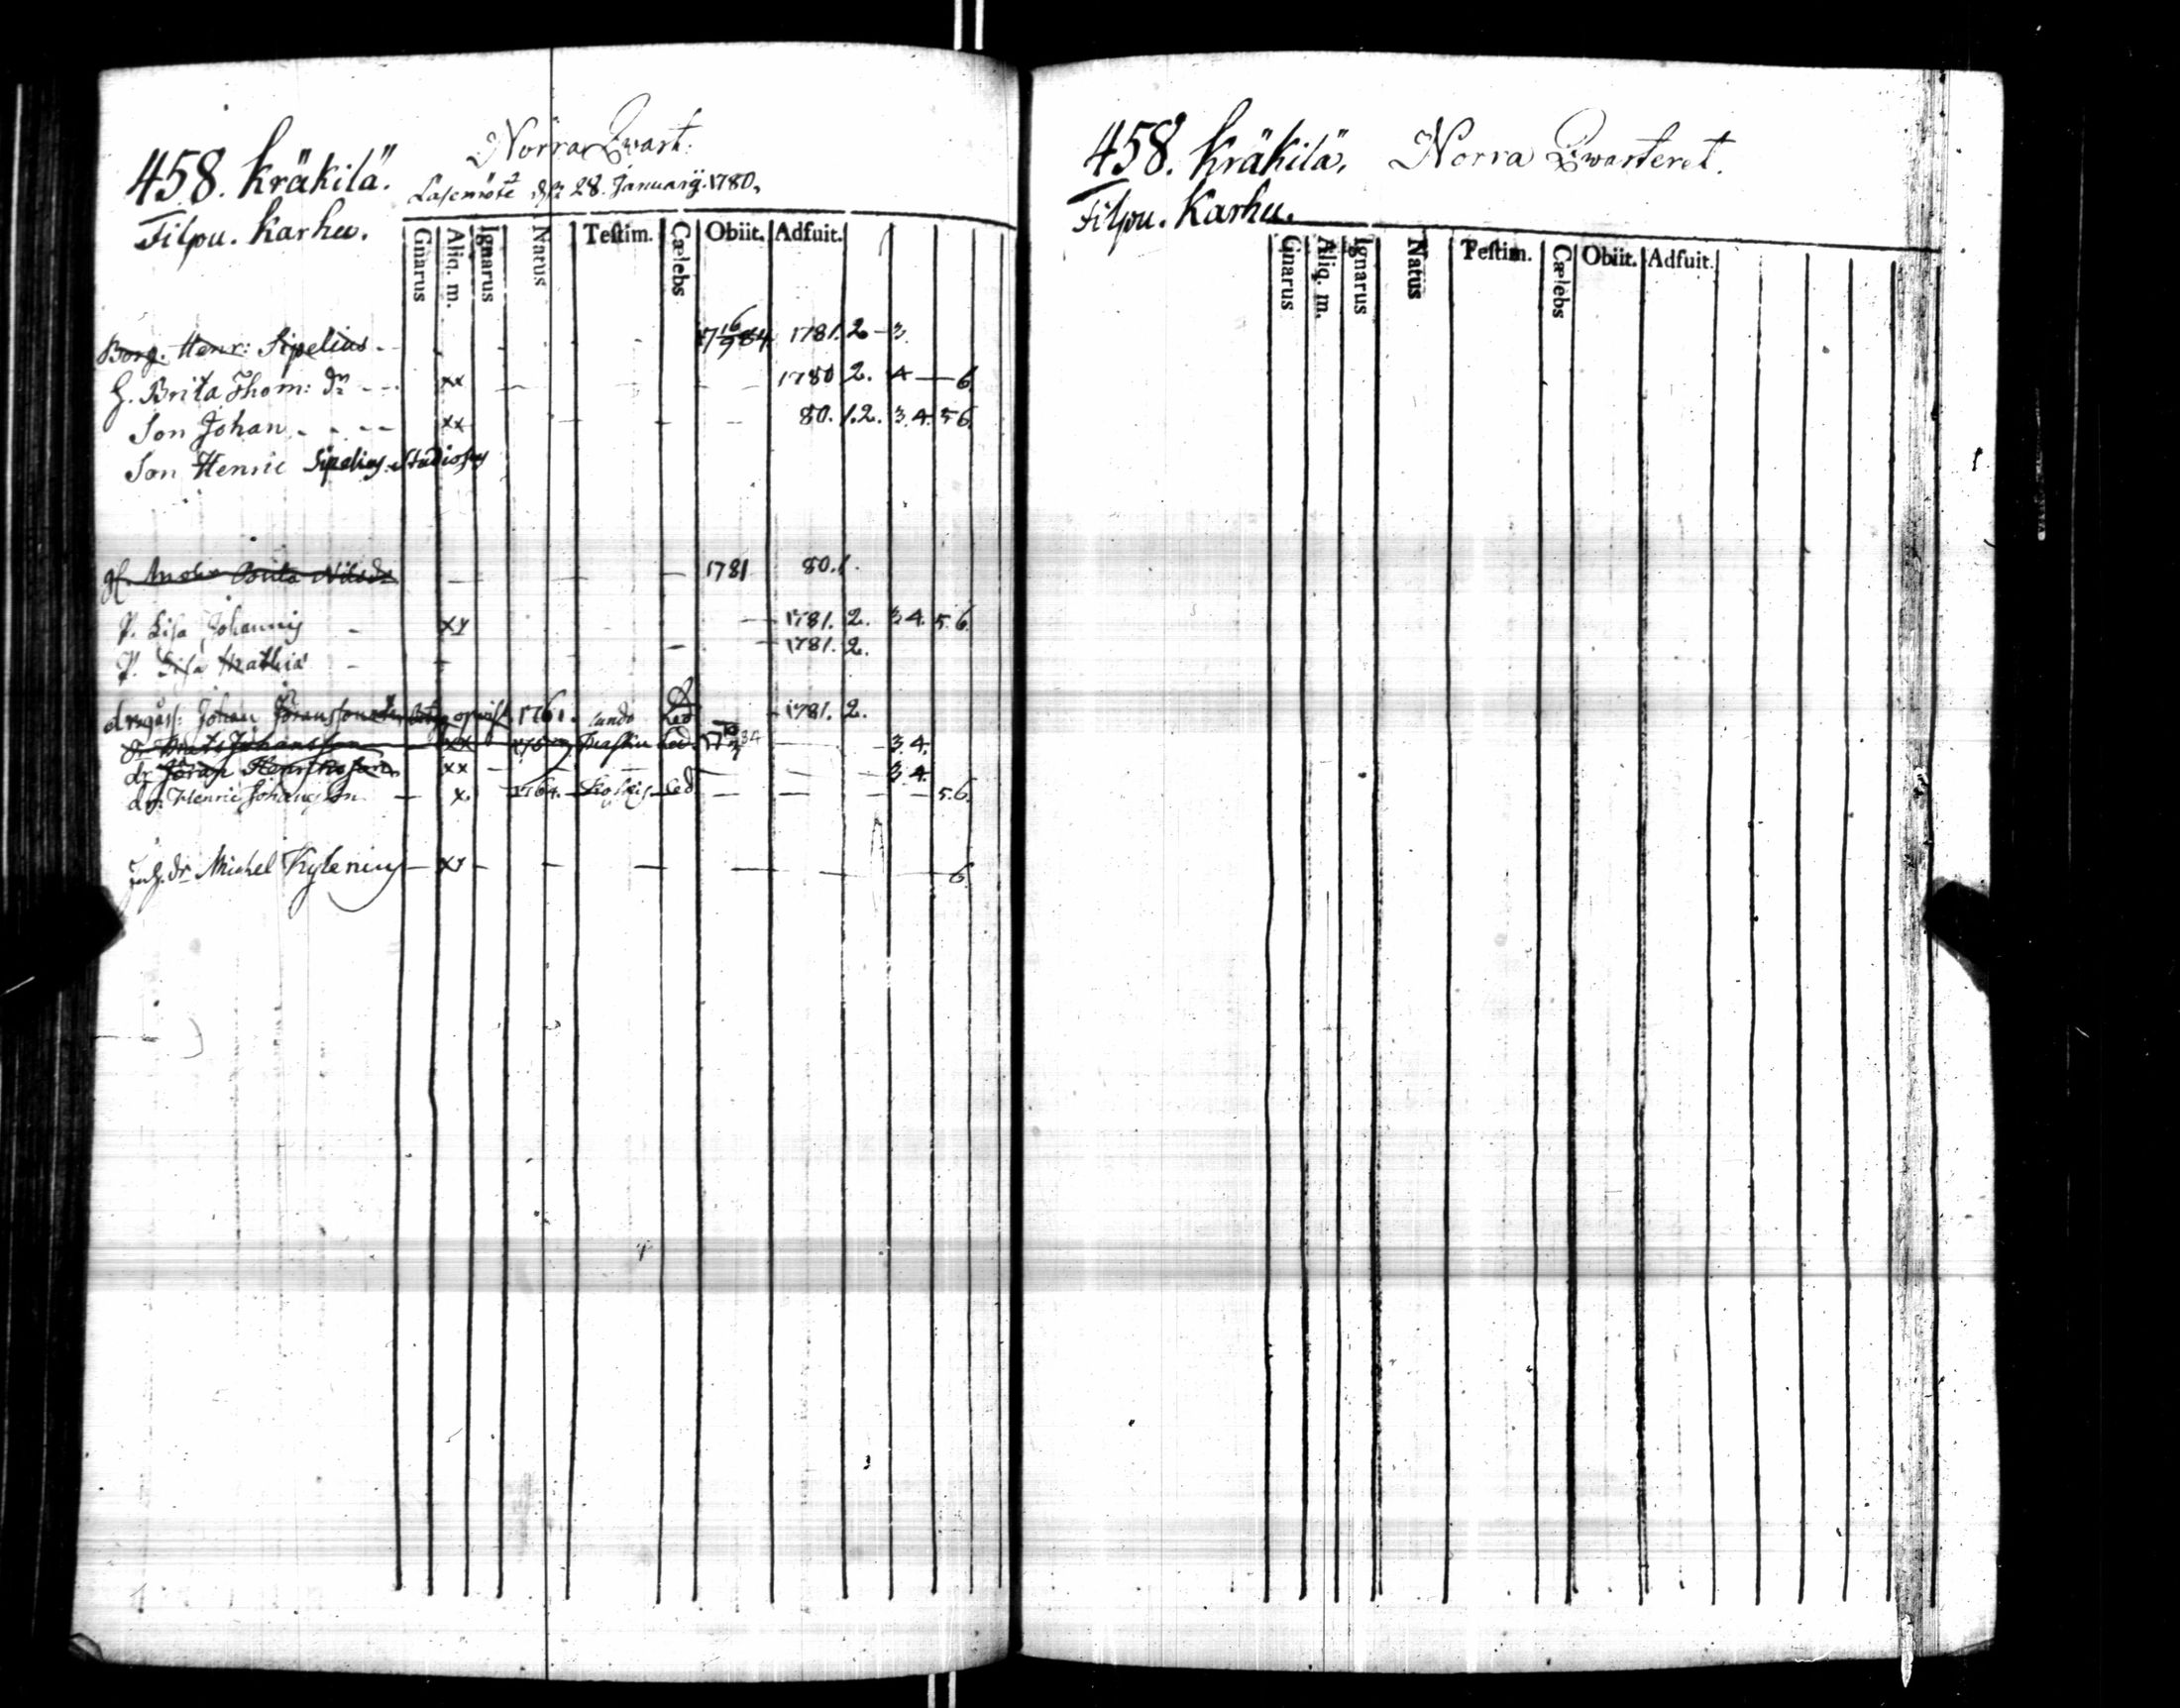 458. Kräkilä. Norra Qwart:
Läsemöte d. 28. Januarij. 1780.
Filpu. Karhu.
Gnarus Aliq. m. Ignarus Natus Testim. Cælebs Obiit. Adfuit.
Borg. Henr: Sipelius - 17 16/9 84 1781. 2 - 3.
H. Brita Thom: dr xx 1780 2. 4 — 6
Son Johan xx 80. 1. 2. 3. 4. 5 6
Son Henric Sipelius Studiosus
Moder Brita Nilsdr 1781 80. 1.
P. Lisa Johannis xx 1781. 2. 3 4. 5. 6.
P. Lisa Mathiæ 1781. 2.
Johan Jöransson 1761. Lundo Led 1781. 2.
Mats Johansson xx 3. 4.
dr Jöran Henricsson xx 3. 4.
dr. Henric Johansson x. 1764. Led 5. 6.
dr Michel Kylenius xx 6.
458. Kräkilä. Norra Qwarteret.
Filpu. Karhu.
Gnarus Aliq. m. Ignarus Natus Testim. Cælebs Obiit. Adfuit.